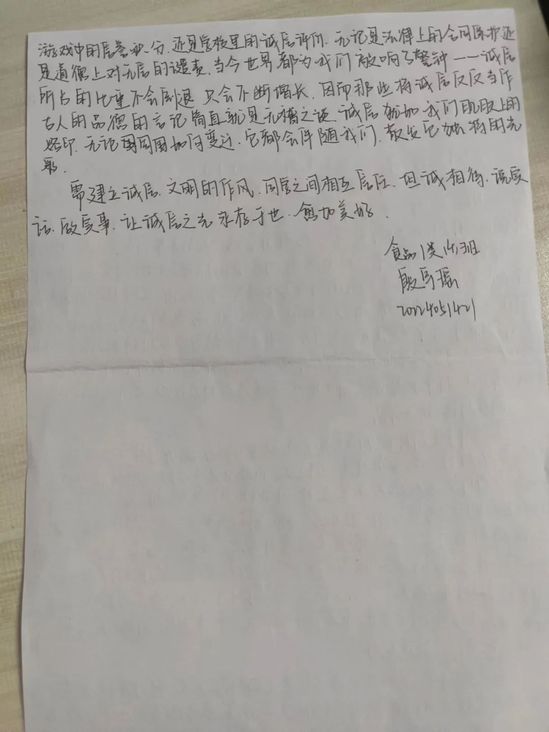 游戏中的信誉积分,还是学校里的诚信评价,无论是法律上的合同保护还
是道德上对无信的谴责,当今世界都为我们敲响了警钟——诚信
所占的比重不会倒退,只会不断增长,因而那些将诚信仅仅当作
古人的品德的言论简直就是无稽之谈,诚信犹如我们肌肤上的
烙印,无论周围如何变迁,它都会伴随我们,散发它独特的光
芒。
需建立诚信、文明的作风,同学之间相互信任,坦诚相待,说实
话,做实事,让诚信之光永存于世,愈加美好。
食品 班
20224051421